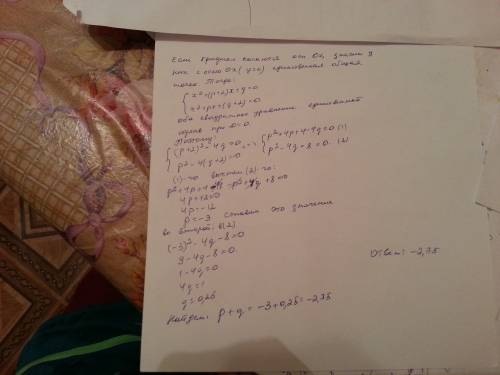 Если графики касаются оси Ox, значит у
них с осью Ox (y=0) единственная общая
точка. Тогда:
x²+(p+2)x+q=0
x²+px+(q+2)=0.
оба квадратные уравнения
при D=0.
Поэтому:
(p+2)²-4q=0 p²+4p+4-4q=0 (1)
p²-4(q+2)=0. p²-4q-8=0. (2)
(1)-го вычтем (2)-го:
p²+4p+4-4q-p²+4q+8=0
4p+12=0
4p=-12
p=-3 ставим это значение
во второй: в(2)
(-3)²-4q-8=0
9-4q-8=0
1-4q=0
4q=1
q=0,25
Найдем: p+q=-3+0,25=-2,75
Ответ: -2,75